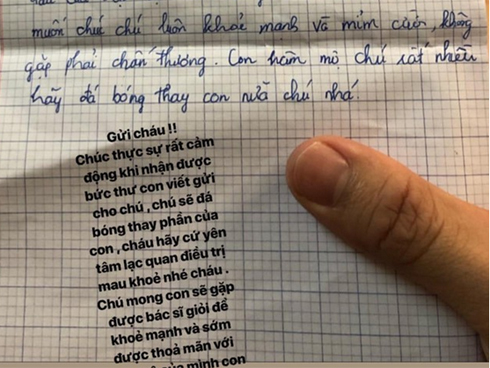 muốn chúc chú luôn khoẻ mạnh và mỉm cười, không
gặp phải chấn thương. Con hâm mộ chú rất nhiều
hãy đá bóng thay con nữa chú nhá.
Gửi cháu !!
Chúc thực sự rất cảm
động khi nhận được
bức thư con viết gửi
cho chú , chú sẽ đá
bóng thay phần của
con , cháu hãy cứ yên
tâm lạc quan điều trị
mau khoẻ nhé cháu .
Chú mong con sẽ gặp
được bác sĩ giỏi để
khoẻ mạnh và sớm
được thoả mãn với
của mình con